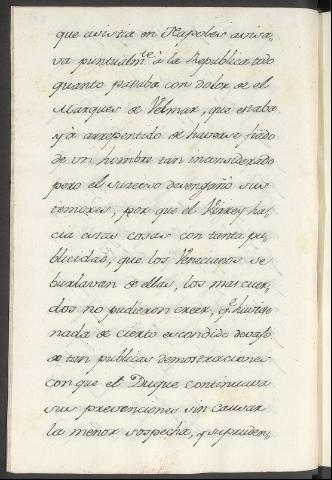 que asistia en Napoles avisa,
va puntualm.te à la Republica todo
quanto pasaba con dolor de el
Marques de Velmar, que estaba
yà arrepentido de haverse fiado
de un hombre tan inconsiderado
pero el suceso desengañò sus
temores, por que el Virrey ha,
cia estas cosas con tanta pu,
blicidad, que los Venecianos se
burlavan de ellas, los mas cuer,
dos no pudieron creer, q.e huviese
nada de cierto escondido devajo
de tan publicas demostraciones
con que el Duque continuava
sus prevenciones sin causar
la menor sospecha, y su pruden,